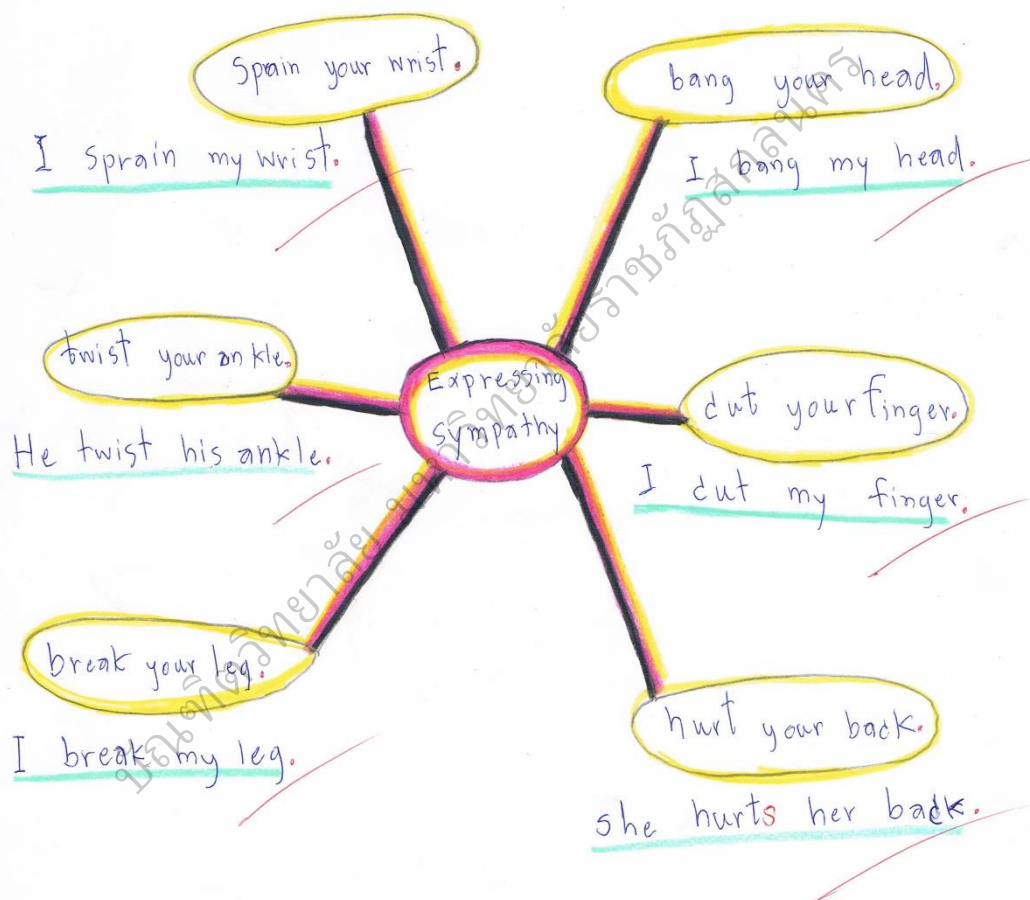 Spain your wrist.
I sprain my wrist.
bang your head.
I bang my head.
twist your ankle.
He twist his ankle.
Expressing
sympathy
cut your finger.
I cut my finger.
break your leg.
I break my leg.
hurt your back.
She hurts her back.
บัณฑิตวิทยาลัย มหาวิทยาลัยราชภัฏสกลนคร